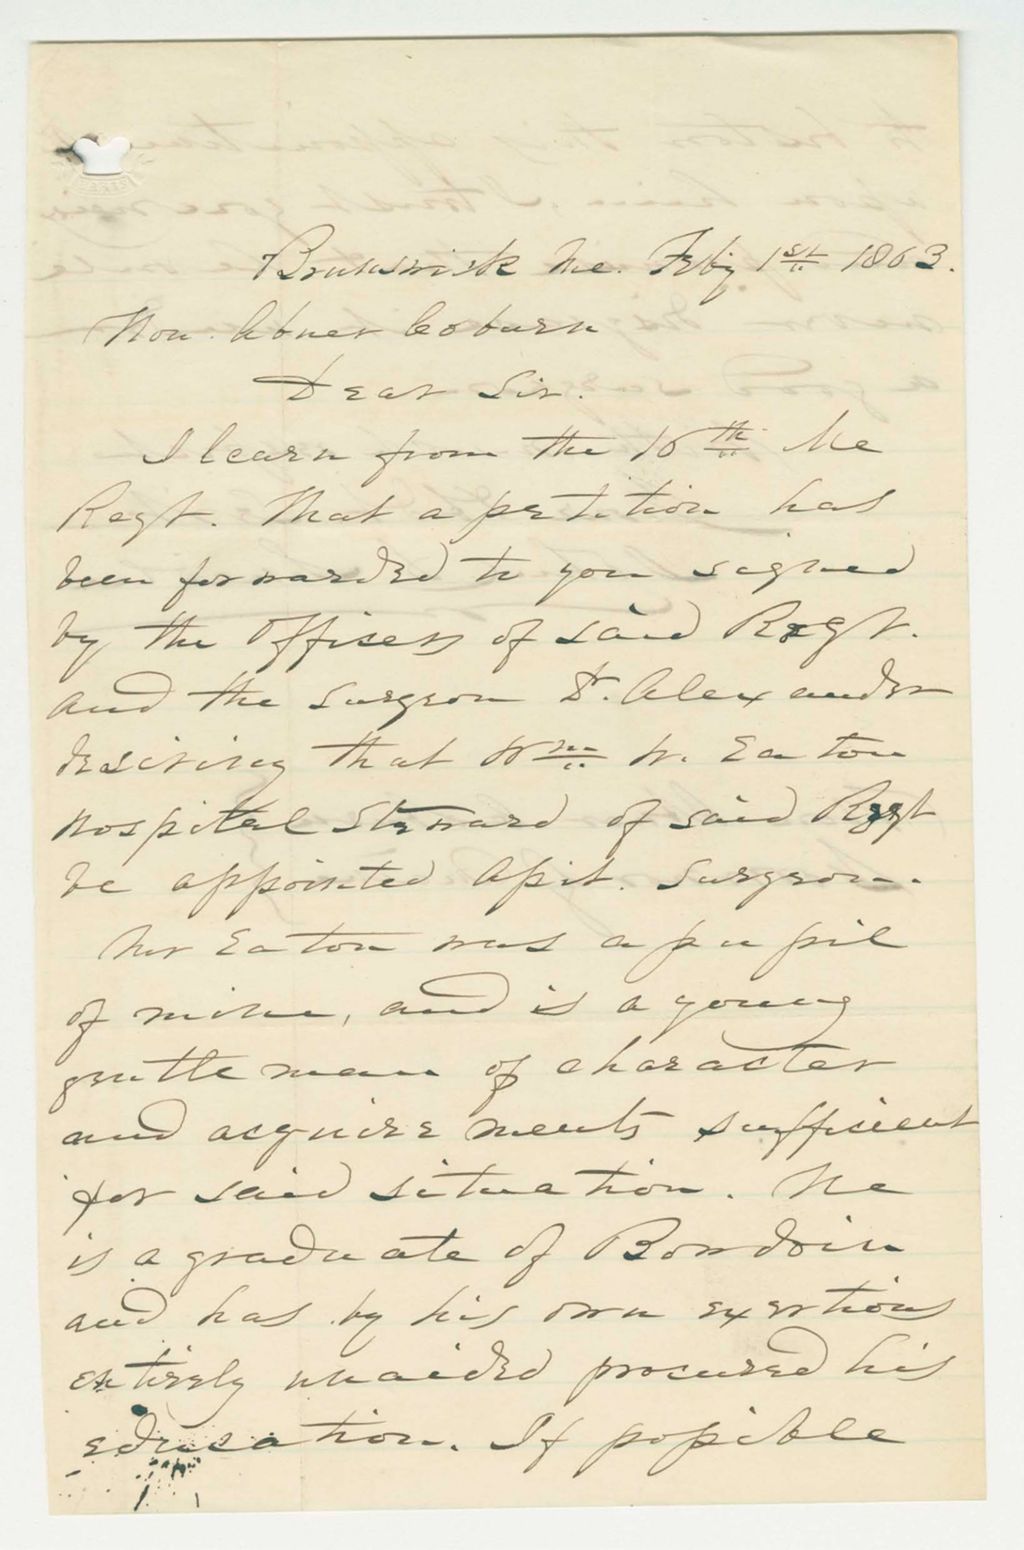 Brunswick Me. Feby 1st 1863.
Hon. Abner Coburn
Dear Sir.
I learn from the 16th Me
Regt. that a petition has
been forwarded to you signed
by the Officers of said Regt.
and the Surgeon Dr. Alexander
desiring that Wm W. Eaton
Hospital Steward of said Regt
be appointed Asst. Surgeon.
Mr Eaton was a pupil
of mine, and is a young
gentleman of character
and acquirements sufficient
for said situation. He
is a graduate of Bowdoin
and has by his own exertions
entirely unaided procured his
education. If possible